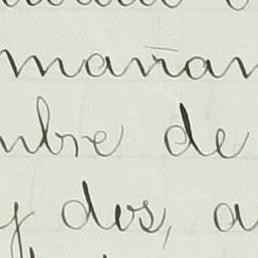 mañan
mbre de
y dos, a